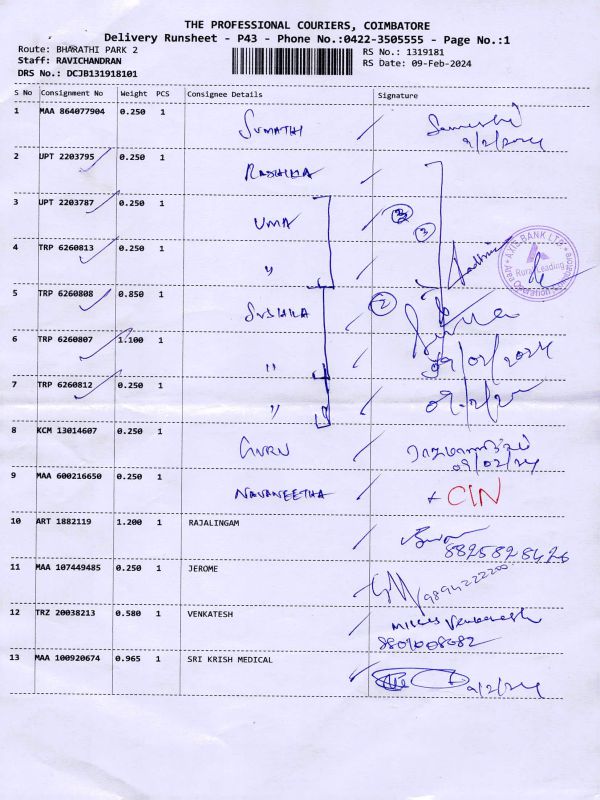 THE PROFESSIONAL COURIERS, COIMBATORE
Delivery Runsheet - P43 - Phone No.:0422-3505555 - Page No.:1
Route: BHARATHI PARK 2
RS No.: 1319181
Staff: RAVICHANDRAN
RS Date: 09-Feb-2024
DRS No.: DCJB131918101
S No Consignment No Weight PCS Consignee Details Signature
1 MAA 864077904 0.250 1 SUMATHI
9/2/2024
2 UPT 2203795 0.250 1 RADHIKA
3 UPT 2203787 0.250 1 UMA 3
3
4 TRP 6260813 0.250 1 "
AXIS BANK LTD.
Rural Lending
5 TRP 6260808 0.850 1 SUSHILA 2
6 TRP 6260807 1.100 1 " 09/02/2024
7 TRP 6260812 0.250 1 "
8 KCM 13014607 0.250 1 GURU
09/02/24
9 MAA 600216650 0.250 1 NAVANEETHA CIN
10 ART 1882119 1.200 1 RAJALINGAM
8825828426
11 MAA 107449485 0.250 1 JEROME 9894222200
12 TRZ 20038213 0.580 1 VENKATESH
13 MAA 100920674 0.965 1 SRI KRISH MEDICAL 9/2/24